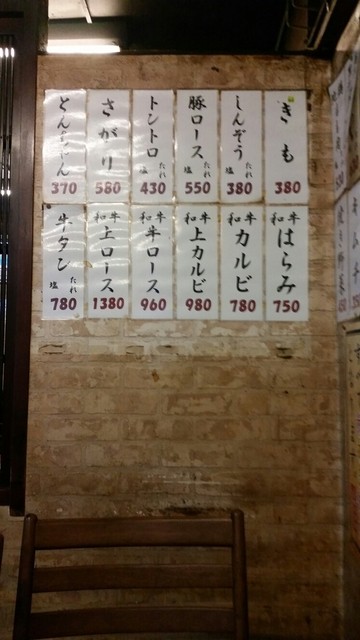 きも
380
しんぞう
たれ
塩
380
豚ロース
たれ
塩
550
トントロ
たれ
塩
430
さがり
580
とんちゃん
370
和牛
はらみ
750
和牛
カルビ
780
和牛
上カルビ
980
和牛
牛ロース
960
和牛
上ロース
1380
牛タン
たれ
塩
780